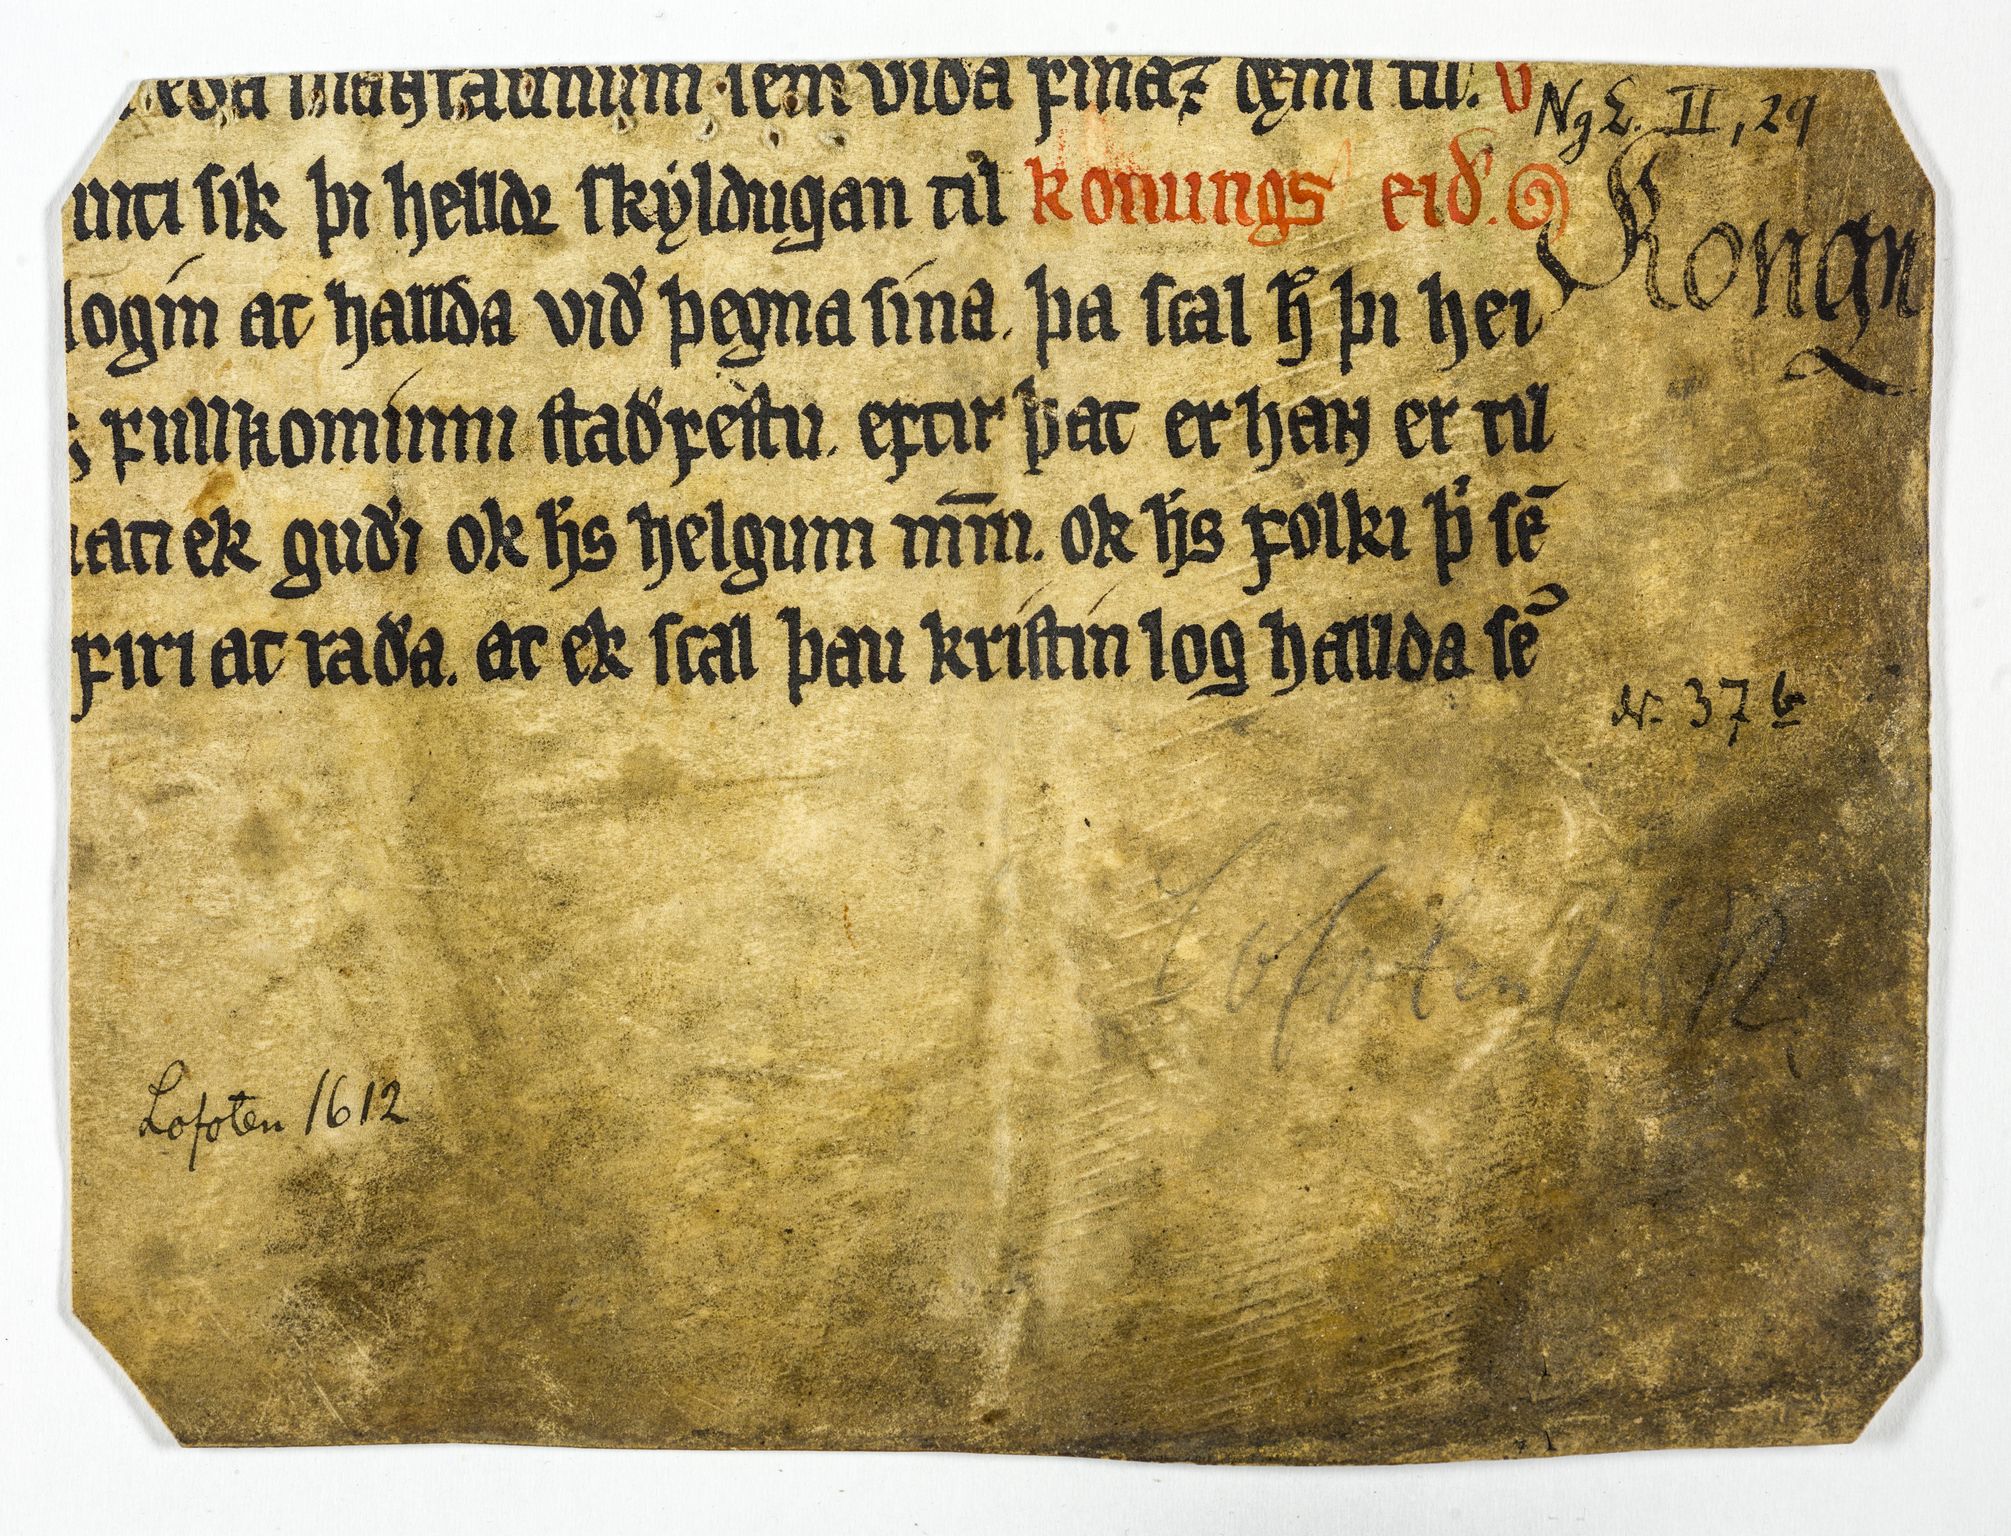 eða mannraunum sem viða finaz dœmi til. v
uiti sik þi helldr skylldugan til konungs eið.
login at hallda við þegna sina. þa scal h̄ þi hei
fullkominni staðfestu. eftir þat er han er til
iati ek guði ok h̄s helgum mm̄. ok h̄s folki þ̄ sē
firi at raða. at ek scal þau kristin log hallda sē
NgL. II, 29
Kongn
Nr. 37 b
Lofoten 1612
Lofoten 1612